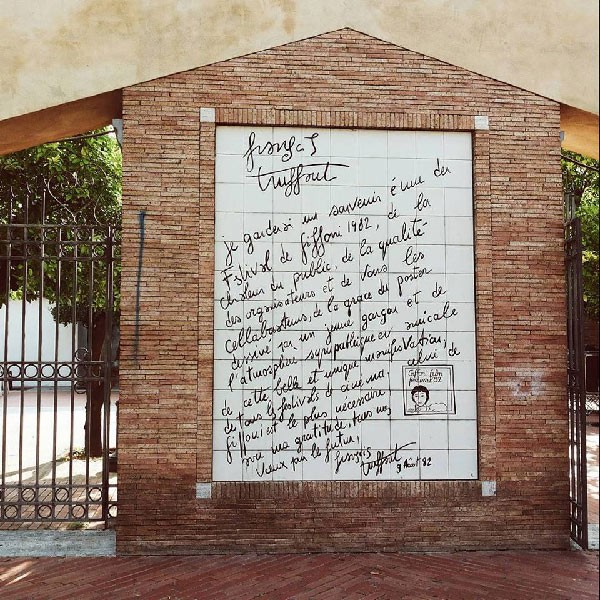 françois
truffaut
je garderai un souvenir ému du
Festival de Giffoni 1982, de la
chaleur du public, de la qualité
des organisateurs et de tous les
collaborateurs, de la grâce du poster
dessiné par un jeune garçon et de
l'atmosphère sympathique et musicale
de cette belle et unique manifestation,
de tous les festivals de cinéma, celui de
Giffoni est le plus nécessaire
ma gratitude, tous mes
vœux pour le futur,
françois truffaut
Août 82